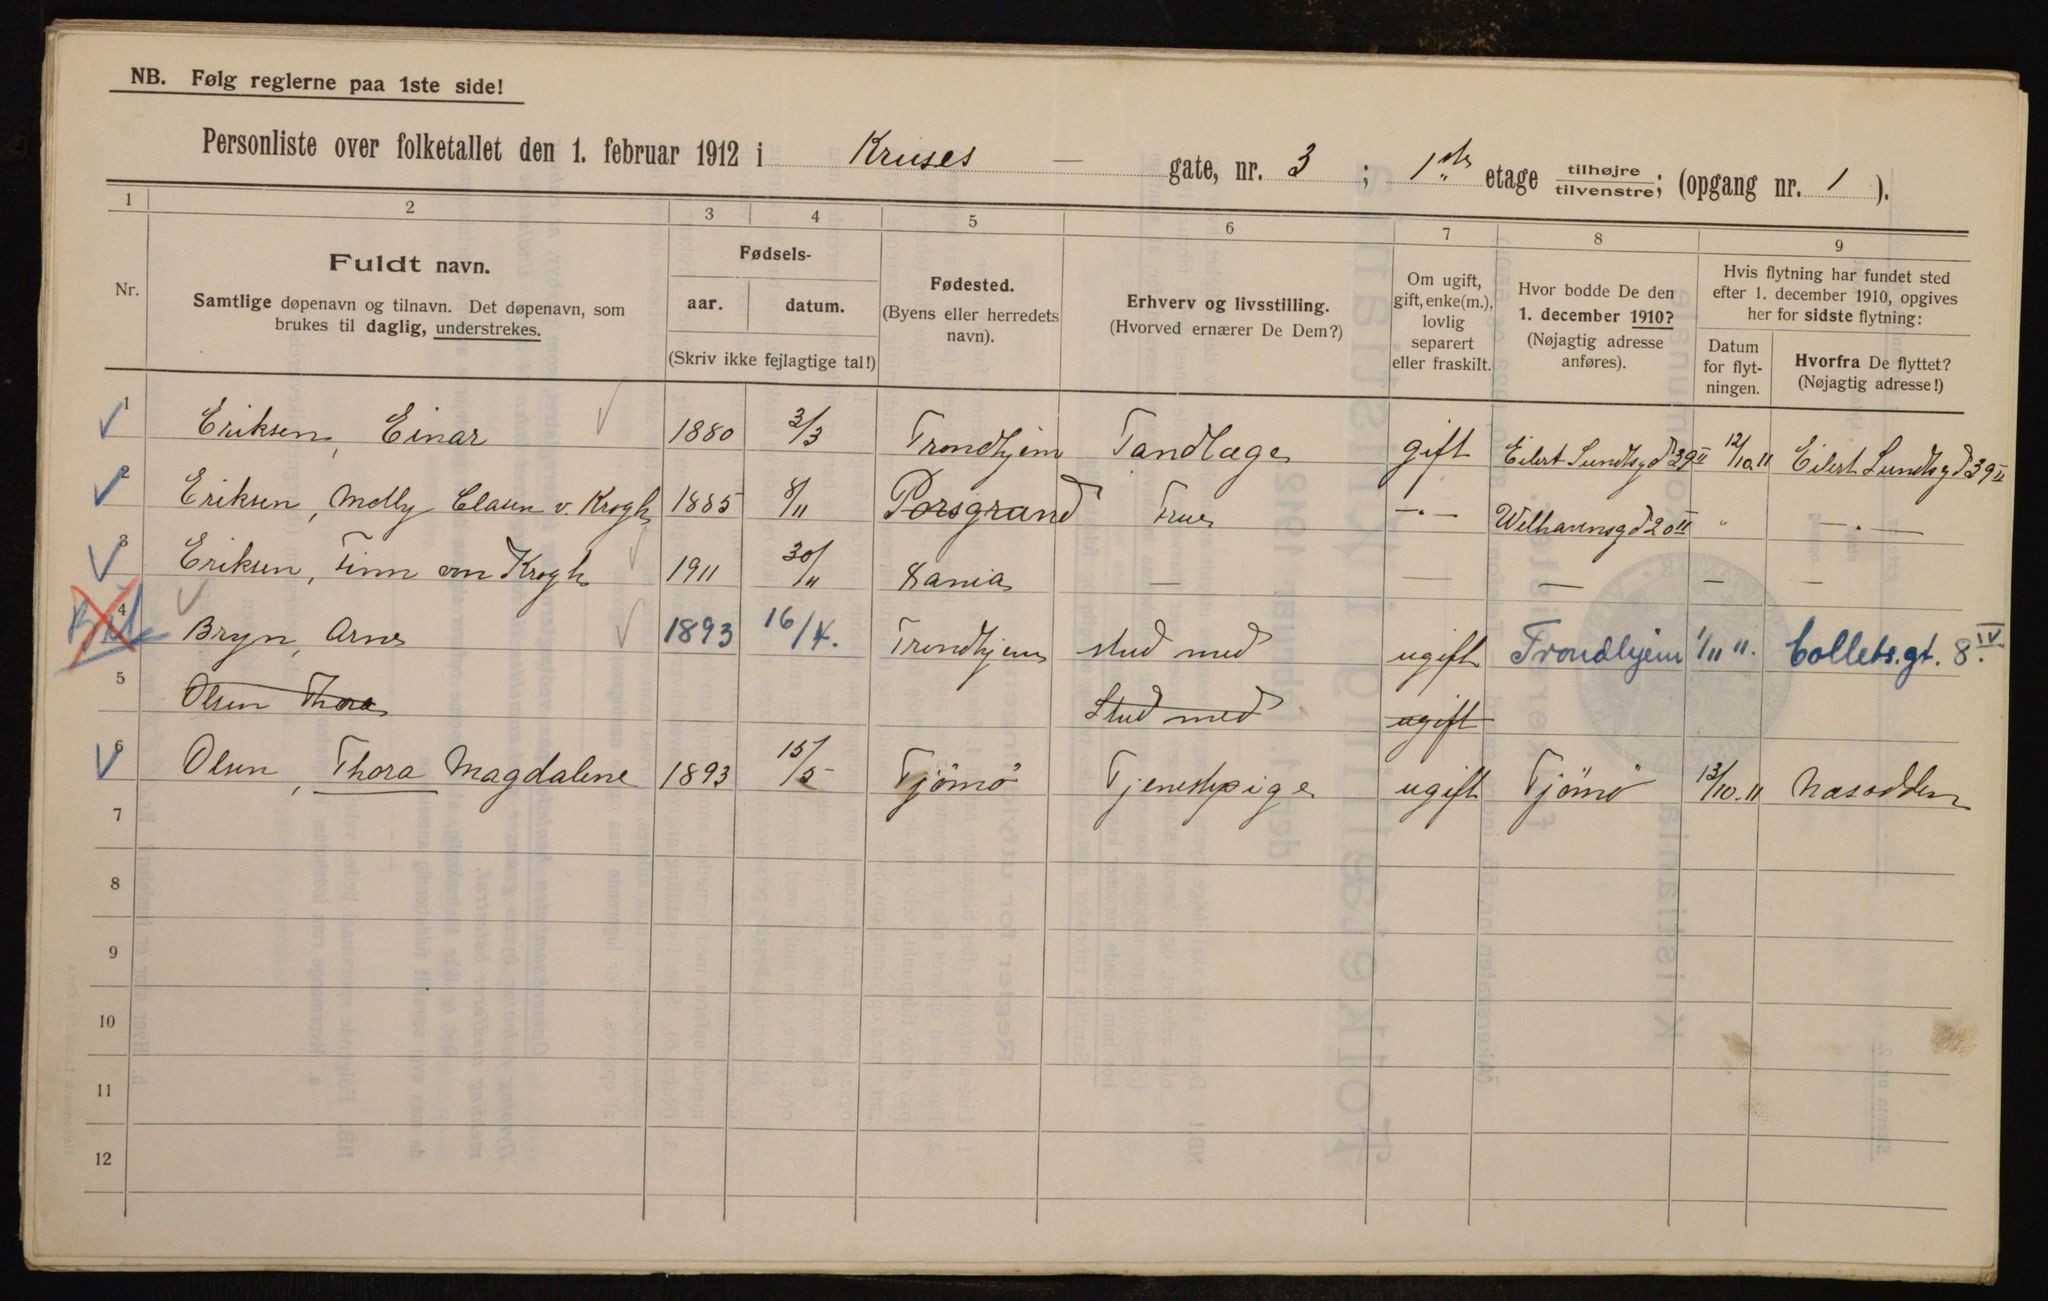 NB. Følg reglerne paa 1ste side!
Personliste over folketallet den 1. februar 1912 i Kruses — gate, nr. 3 ; 1ste etage tilhøjre tilvenstre; (opgang nr. 1 ).
1 2 3 4 5 6 7 8 9
Nr.
Fuldt navn.
Samtlige døpenavn og tilnavn. Det døpenavn, som
brukes til daglig, understrekes.
Fødsels-
aar. datum.
(Skriv ikke fejlagtige tal!)
Fødested.
(Byens eller herredets
navn).
Erhverv og livsstilling.
(Hvorved ernærer De Dem?)
Om ugift,
gift, enke(m.),
lovlig
separert
eller fraskilt.
Hvor bodde De den
1. december 1910?
(Nøjagtig adresse
anføres).
Hvis flytning har fundet sted
efter 1. december 1910, opgives
her for sidste flytning:
Datum
for flyt-
ningen.
Hvorfra De flyttet?
(Nøjagtig adresse!)
1 Eriksen, Einar 1880 3/3 Trondhjem Tandlæge gift Eilert Sundtsgd 39 II 12/10.11 Eilert Sundtsgd 39 II
2 Eriksen, Molly Clasen v. Krogh 1885 8/11 Porsgrund Frue —·— Welhavensgd 20 II " —·—
3 Eriksen, Finn von Krogh 1911 30/11 Kania — — — — —
4 Bryn, Arne 1893 16/4. Trondhjem stud med ugift Trondhjem 1/11 11. Collets.gt. 8 IV.
5 Olsen Thora Stud med ugift
6 Olsen, Thora Magdalene 1893 15/5 Tjömö Tjenestpige ugift Tjömö 13/10.11 Næsodden
7
8
9
10
11
12